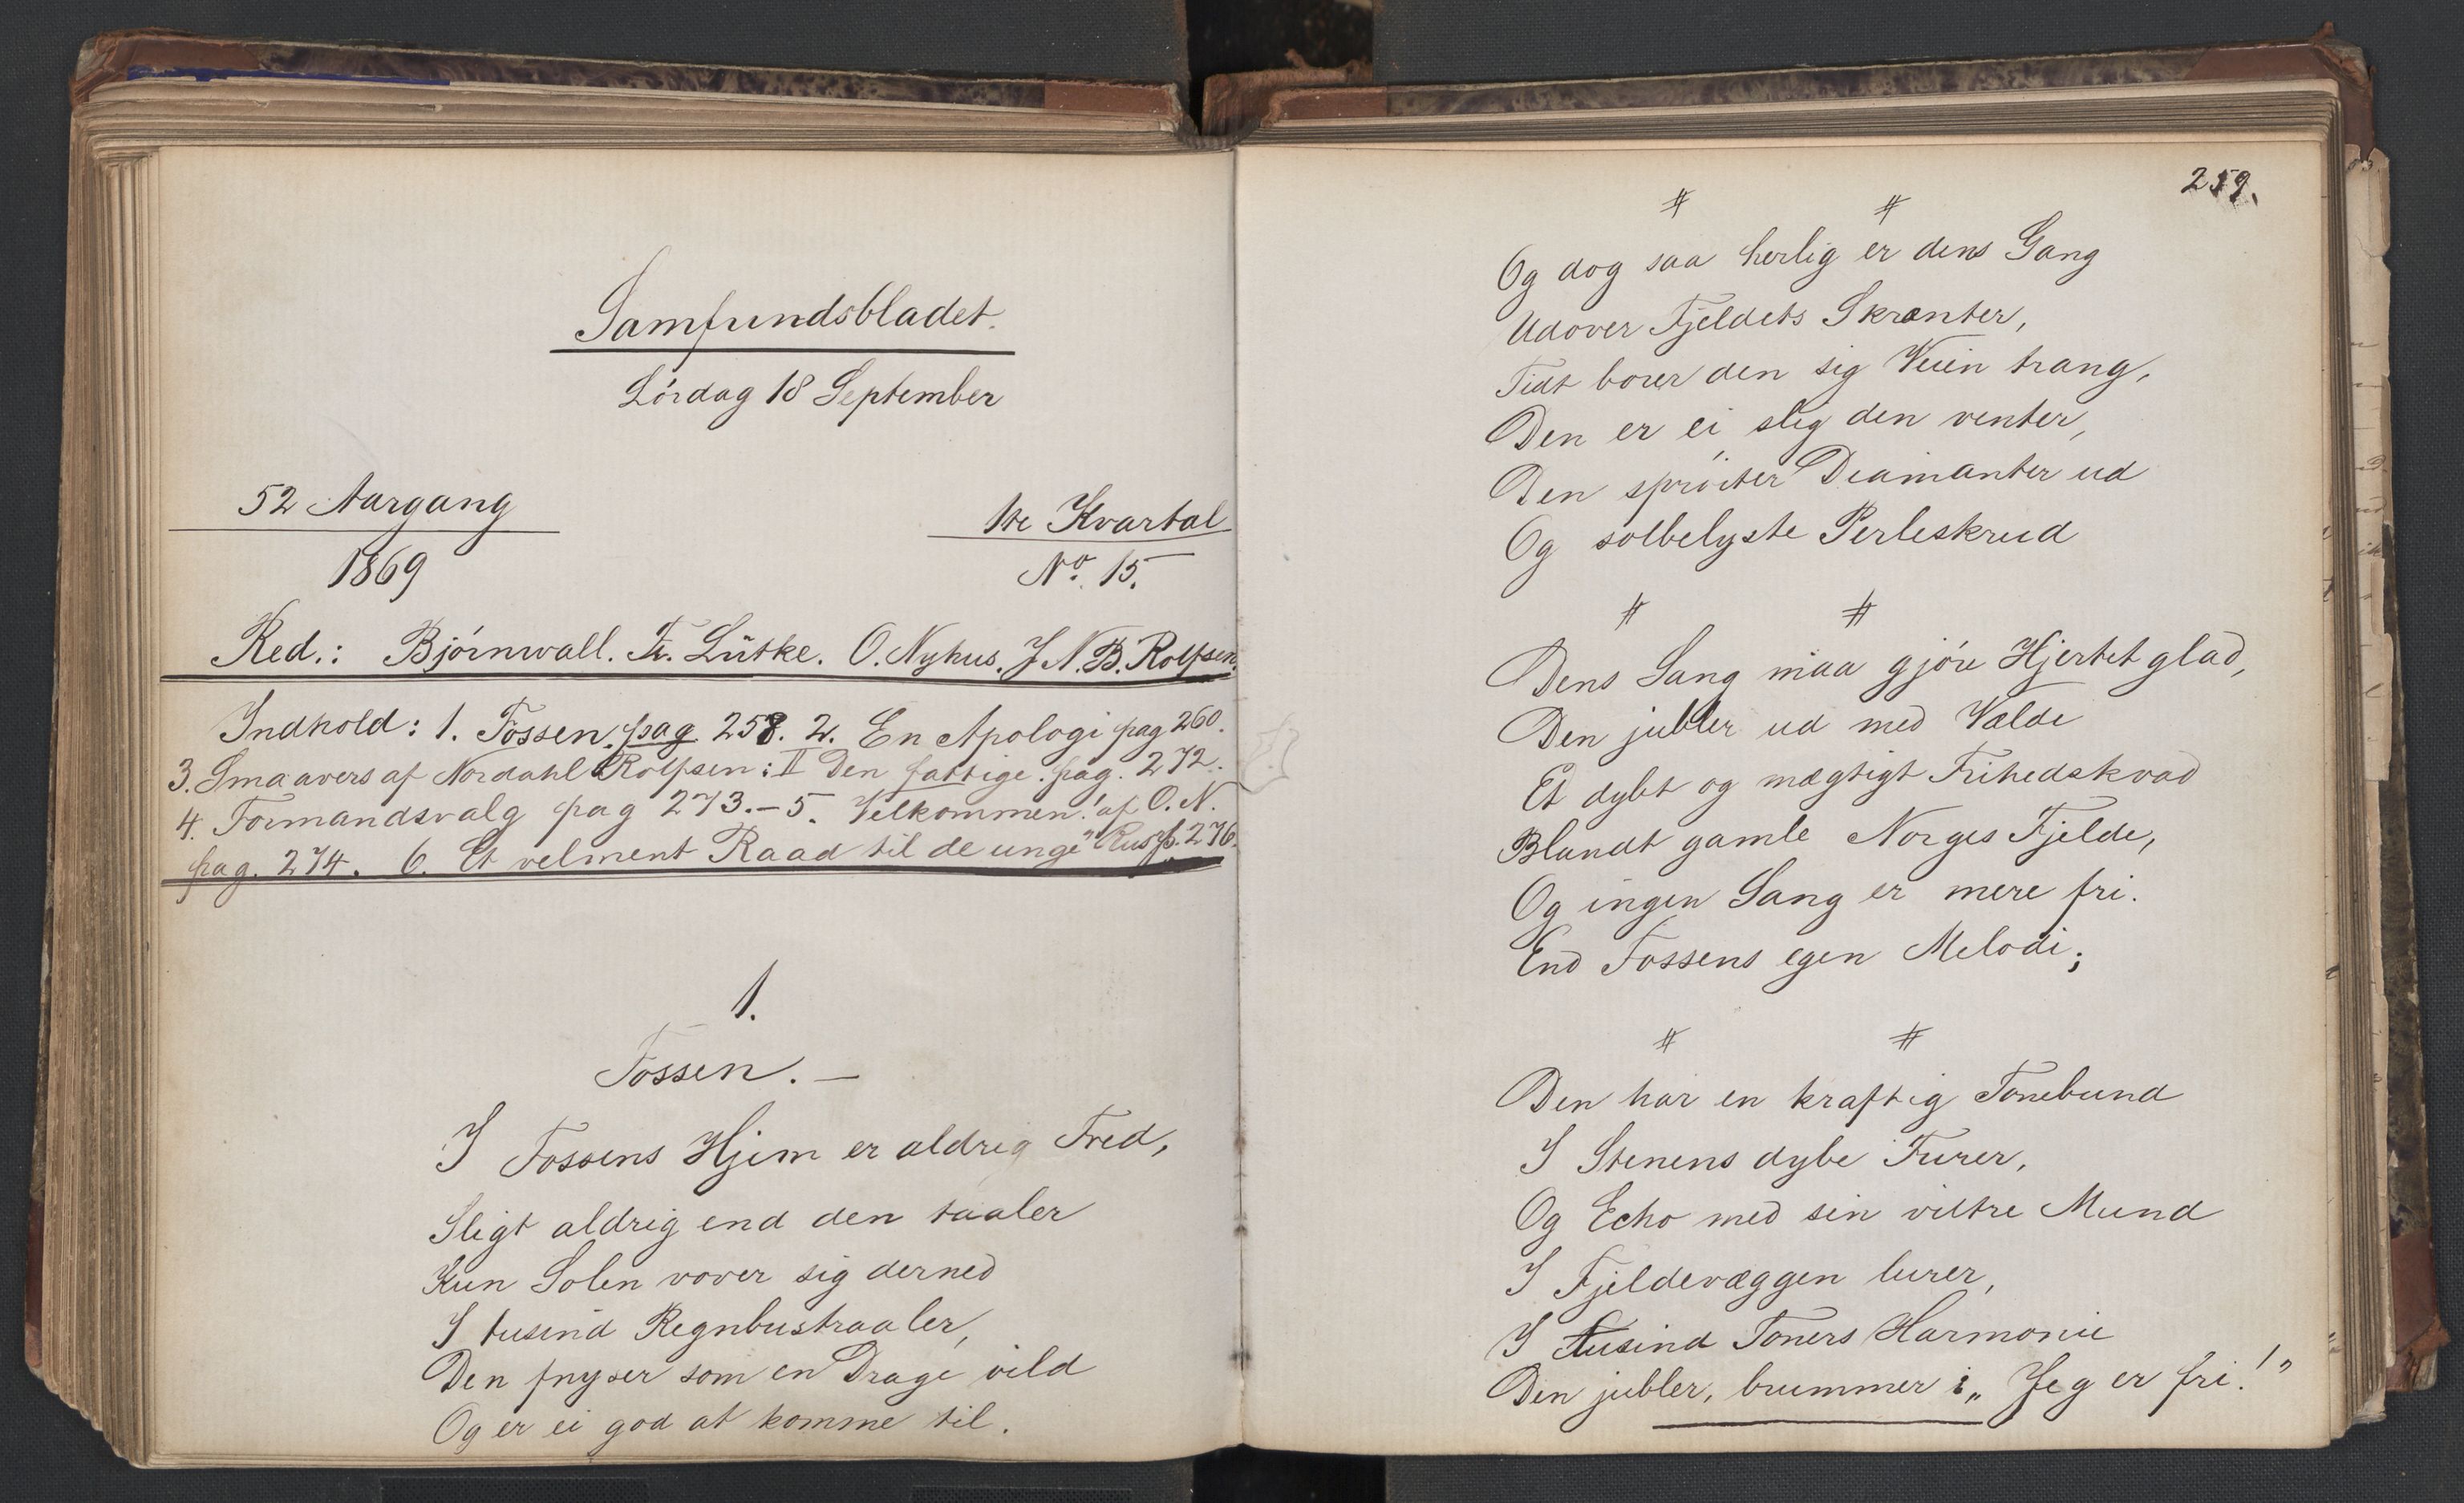 Samfundsbladet.
Lördag 18 September
52 Aargang
1869
1te Kvartal
No. 15.
Red.: Björnwall. Fr. Lütke. O. Nyhus. J N. B. Rolfsen.
Indhold: 1. Fossen. pag. 258. 2. En Apologi pag 260.
3. Smaavers af Nordahl Rolfsen: II Den fattige. pag. 272.
4. Formandsvalg pag 273. - 5. Velkommen! af O. N.
pag. 274. 6. Et velment Raad til de unge "Rus" p. 276.
1.
Fossen. —
I Fossens Hjem er aldrig Fred,
Sligt aldrig end den taaler
Kun Solen vover sig derned
I tusind Regnbustraaler,
Den fnyser som en Drage vild
Og er ei god at komme til.
259.
# #
Og dog saa herlig er dens Gang
Udover Fjeldets Skrænter,
Tidt borer den sig Veien trang,
Den er ei slig den venter,
Den spröiter Diamanter ud
Og solbelyste Perleskrud
# #
Dens Sang maa gjöre Hjertet glad,
Den jubler ud med Vælde
Et dybt og mægtigt Frihedskvad
Blandt gamle Norges Fjelde,
Og ingen Sang er mere fri.
End Fossens egen Melodi;
# #
Den har en kraftig Tonebund
I Stenens dybe Furer,
Og Echo med sin viltre Mund
I Fjeldevæggen lurer,
I Tusind Toners Harmonie
Den jubler, brummer: „Jeg er fri!"